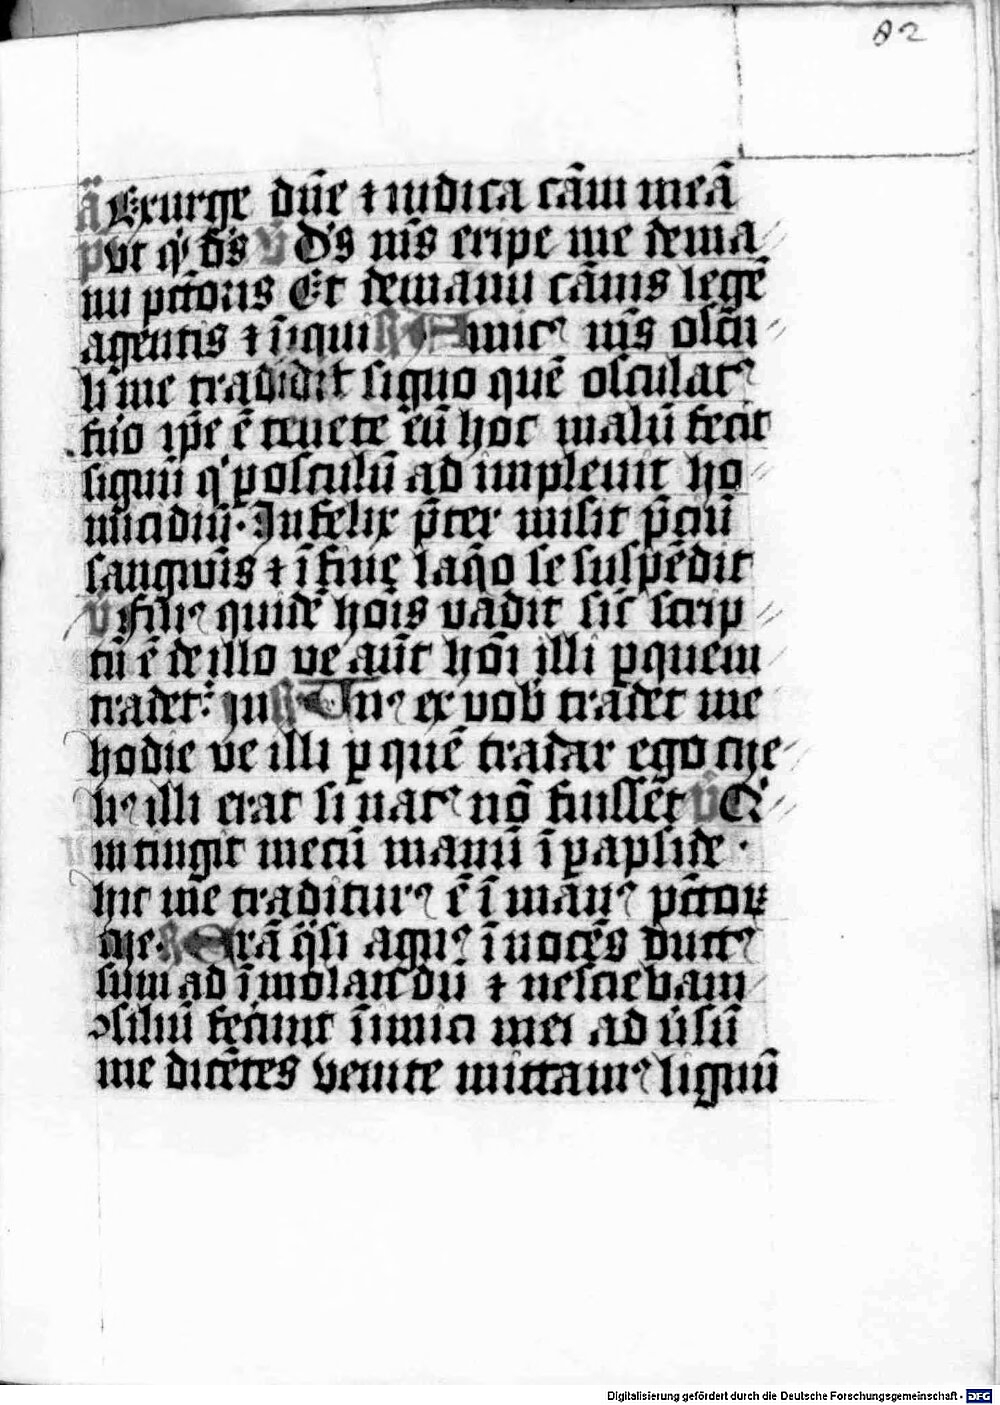 82
ā Exurge dn̄e ⁊ iudica cām meā
pvt q' ds̄ v̄ Ds̄ m̄s eripe me dema
nu pctōris Et demanu cāuis legē
agentis ⁊ īiqui R Amicꝰ m̄s oscu
li me tradidit signo quē osculatꝰ
fuō ip̄e ē tenete eū hoc malū fecit
signū q' ꝑosculū ad impleuit ho
micidiū. Infelix p̄ter misit p̄ciū
sangwīs ⁊ ī fine laq̄o se suspēdit
v̄ Filiꝰ quidē hoīs vadit sic̄ scrip
tū ē de illo ve aūt hōi illi ꝑquem
tradet᷑ iu R Vnꝰ ex vob̄ tradet me
hodie ve illi ꝑ quē tradar ego me
liꝰ illi erat si natꝰ nō fuissēt v̄ Q'
intingit mecū manū ī ꝑapside.
hic me traditurꝰ ē ī manꝰ pctoꝝ
me. R Erā q̄si agnꝰ īnocēs ductꝰ
sum ad īmolandū ⁊ nesciebam
ꝯsiliū fecīnt īimici mei ad v̄sū
me dicētes venite mittamꝰ lignū
Digitalisierung gefördert durch die Deutsche Forschungsgemeinschaft - DFG